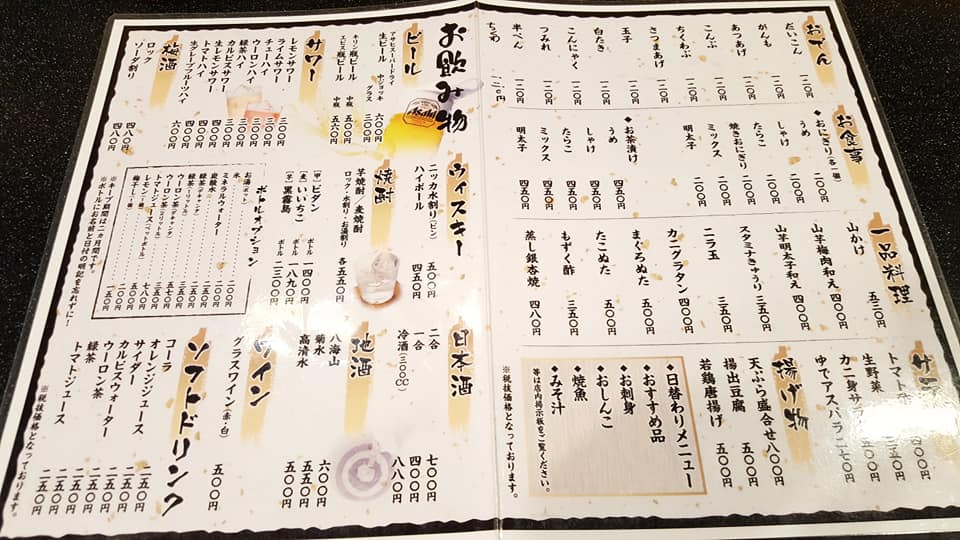 おでん
だいこん 一二〇円
がんも 一二〇円
あつあげ 一二〇円
こんぶ 一二〇円
ちくわぶ 一二〇円
さつまあげ 一二〇円
玉子 一二〇円
白たき 一二〇円
こんにゃく 一二〇円
つみれ 一二〇円
半ぺん 一二〇円
ちくわ 一二〇円
お食事
◆おにぎり(各一個)
うめ 二〇〇円
しゃけ 二〇〇円
たらこ 二〇〇円
焼きおにぎり 二〇〇円
ミックス 二五〇円
明太子 二五〇円
◆お茶漬け
うめ 四五〇円
しゃけ 四五〇円
たらこ 四五〇円
ミックス 五五〇円
明太子 五五〇円
一品料理
山かけ 五三〇円
山芋梅肉和え 四〇〇円
山芋明太子和え 四〇〇円
スタミナきゅうり 三五〇円
ニラ玉 四〇〇円
カニグラタン 四〇〇円
まぐろぬた 五〇〇円
たこぬた 五〇〇円
もずく酢 三五〇円
蒸し銀杏焼 四八〇円
トマト
生野菜
カニ身サ
ゆでアスパラ 二七〇円
揚げ物
天ぷら盛合せ 八〇〇円
揚出豆腐 五〇〇円
若鶏唐揚げ 五〇〇円
◆日替わりメニュー
◆おすすめ品
◆お刺身
◆おしんこ
◆焼魚
◆みそ汁
等は店内掲示板をご覧ください。
※税抜価格となっております。
お飲み物
ビール
アサヒスーパードライ
生ビール 中ジョッキ 六〇〇円
グラス 三〇〇円
キリン瓶ビール 中瓶 五〇〇円
エビス瓶ビール 中瓶 五六〇円
サワー
レモンサワー 三〇〇円
ライムサワー 三〇〇円
チューハイ 三〇〇円
ウーロンハイ 三〇〇円
緑茶ハイ 三〇〇円
カルピスサワー 三〇〇円
生レモンサワー 四〇〇円
トマトハイ 四〇〇円
生グレープフルーツハイ 六〇〇円
梅酒
ロック 四八〇円
ソーダ割り 四八〇円
ウィスキー
ニッカ水割り(ビン) 五〇〇円
ハイボール 四五〇円
焼酎
芋焼酎/麦焼酎
ロック・水割り・お湯割り 各五五〇円
(甲)ビダン ボトル 一四〇〇円
(麦)いいちこ ボトル 一八九〇円
(芋)黒霧島 ボトル 二三〇〇円
ボトルオプション
お湯(ポット)
氷 二〇〇円
ミネラルウォーター 二〇〇円
炭酸水 二〇〇円
緑茶(デキャンタ) 二五〇円
ウーロン茶(デキャンタ)
ウーロン茶(2リットル) 五七〇円
トマトジュース
レモン(1個)
梅干し(1個) 一五〇円
※キープ期間は二カ月間です。
※ボトルにお名前と日付の明記を忘れずに!
日本酒
二合 七〇〇円
一合 四〇〇円
冷酒(三〇〇CC) 八八〇円
地酒
八海山 六〇〇円
菊水 五〇〇円
高清水 五〇〇円
ワイン
グラスワイン(赤・白) 五〇〇円
ソフトドリンク
コーラ 二五〇円
オレンジジュース 二五〇円
サイダー 二五〇円
カルピスウォーター 二五〇円
ウーロン茶 二五〇円
緑茶 二五〇円
トマトジュース 二五〇円
※税抜価格となっております。
Asahi